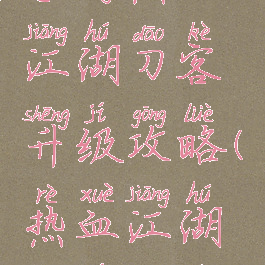 jiāng hú dāo kè
江湖刀客
shēng jí gōng lüè
升级攻略(
rè xuè jiāng hú
热血江湖